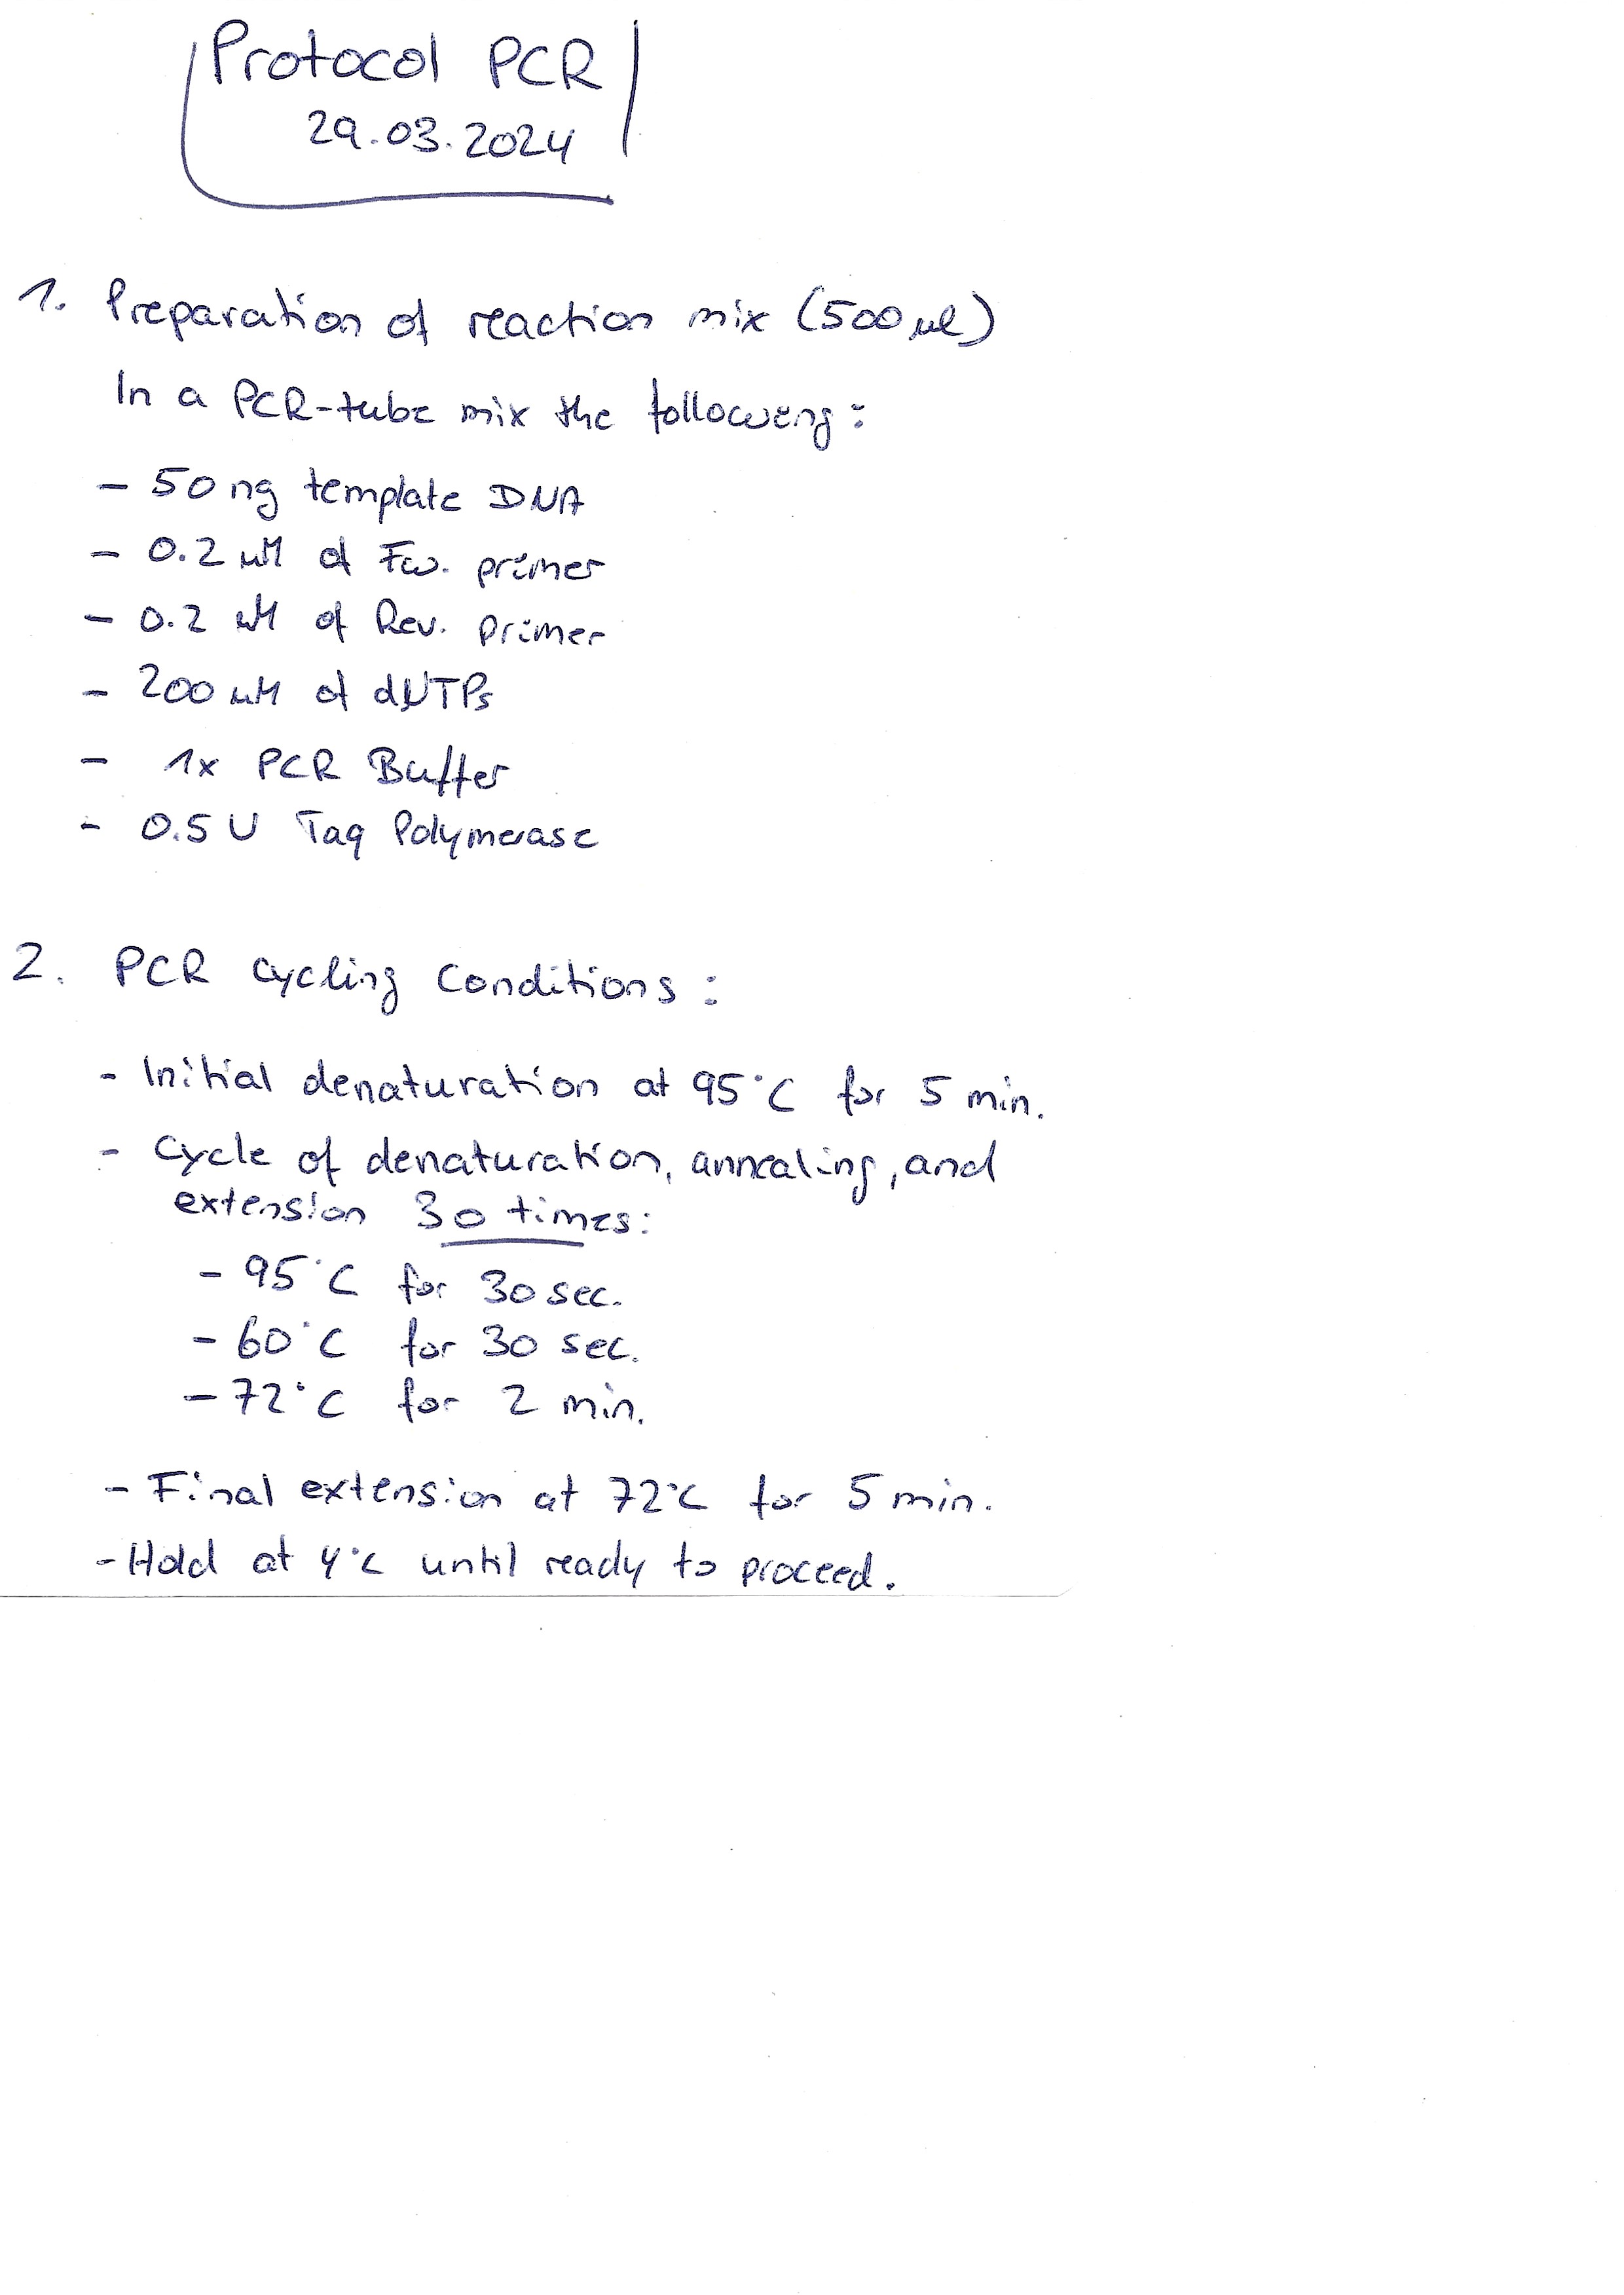 Protocol PCR
29.03.2024
1. Preparation of reaction mix (500 µl)
In a PCR-tube mix the following:
- 50 ng template DNA
- 0.2 µM of Fw. primer
- 0.2 µM of Rev. primer
- 200 µM of dNTPs
- 1x PCR Buffer
- 0.5 U Taq Polymerase
2. PCR cycling conditions:
- Initial denaturation at 95°C for 5 min.
- Cycle of denaturation, annealing, and
extension 30 times:
- 95°C for 30 sec.
- 60°C for 30 sec.
- 72°C for 2 min.
- Final extension at 72°C for 5 min.
- Hold at 4°C until ready to proceed.